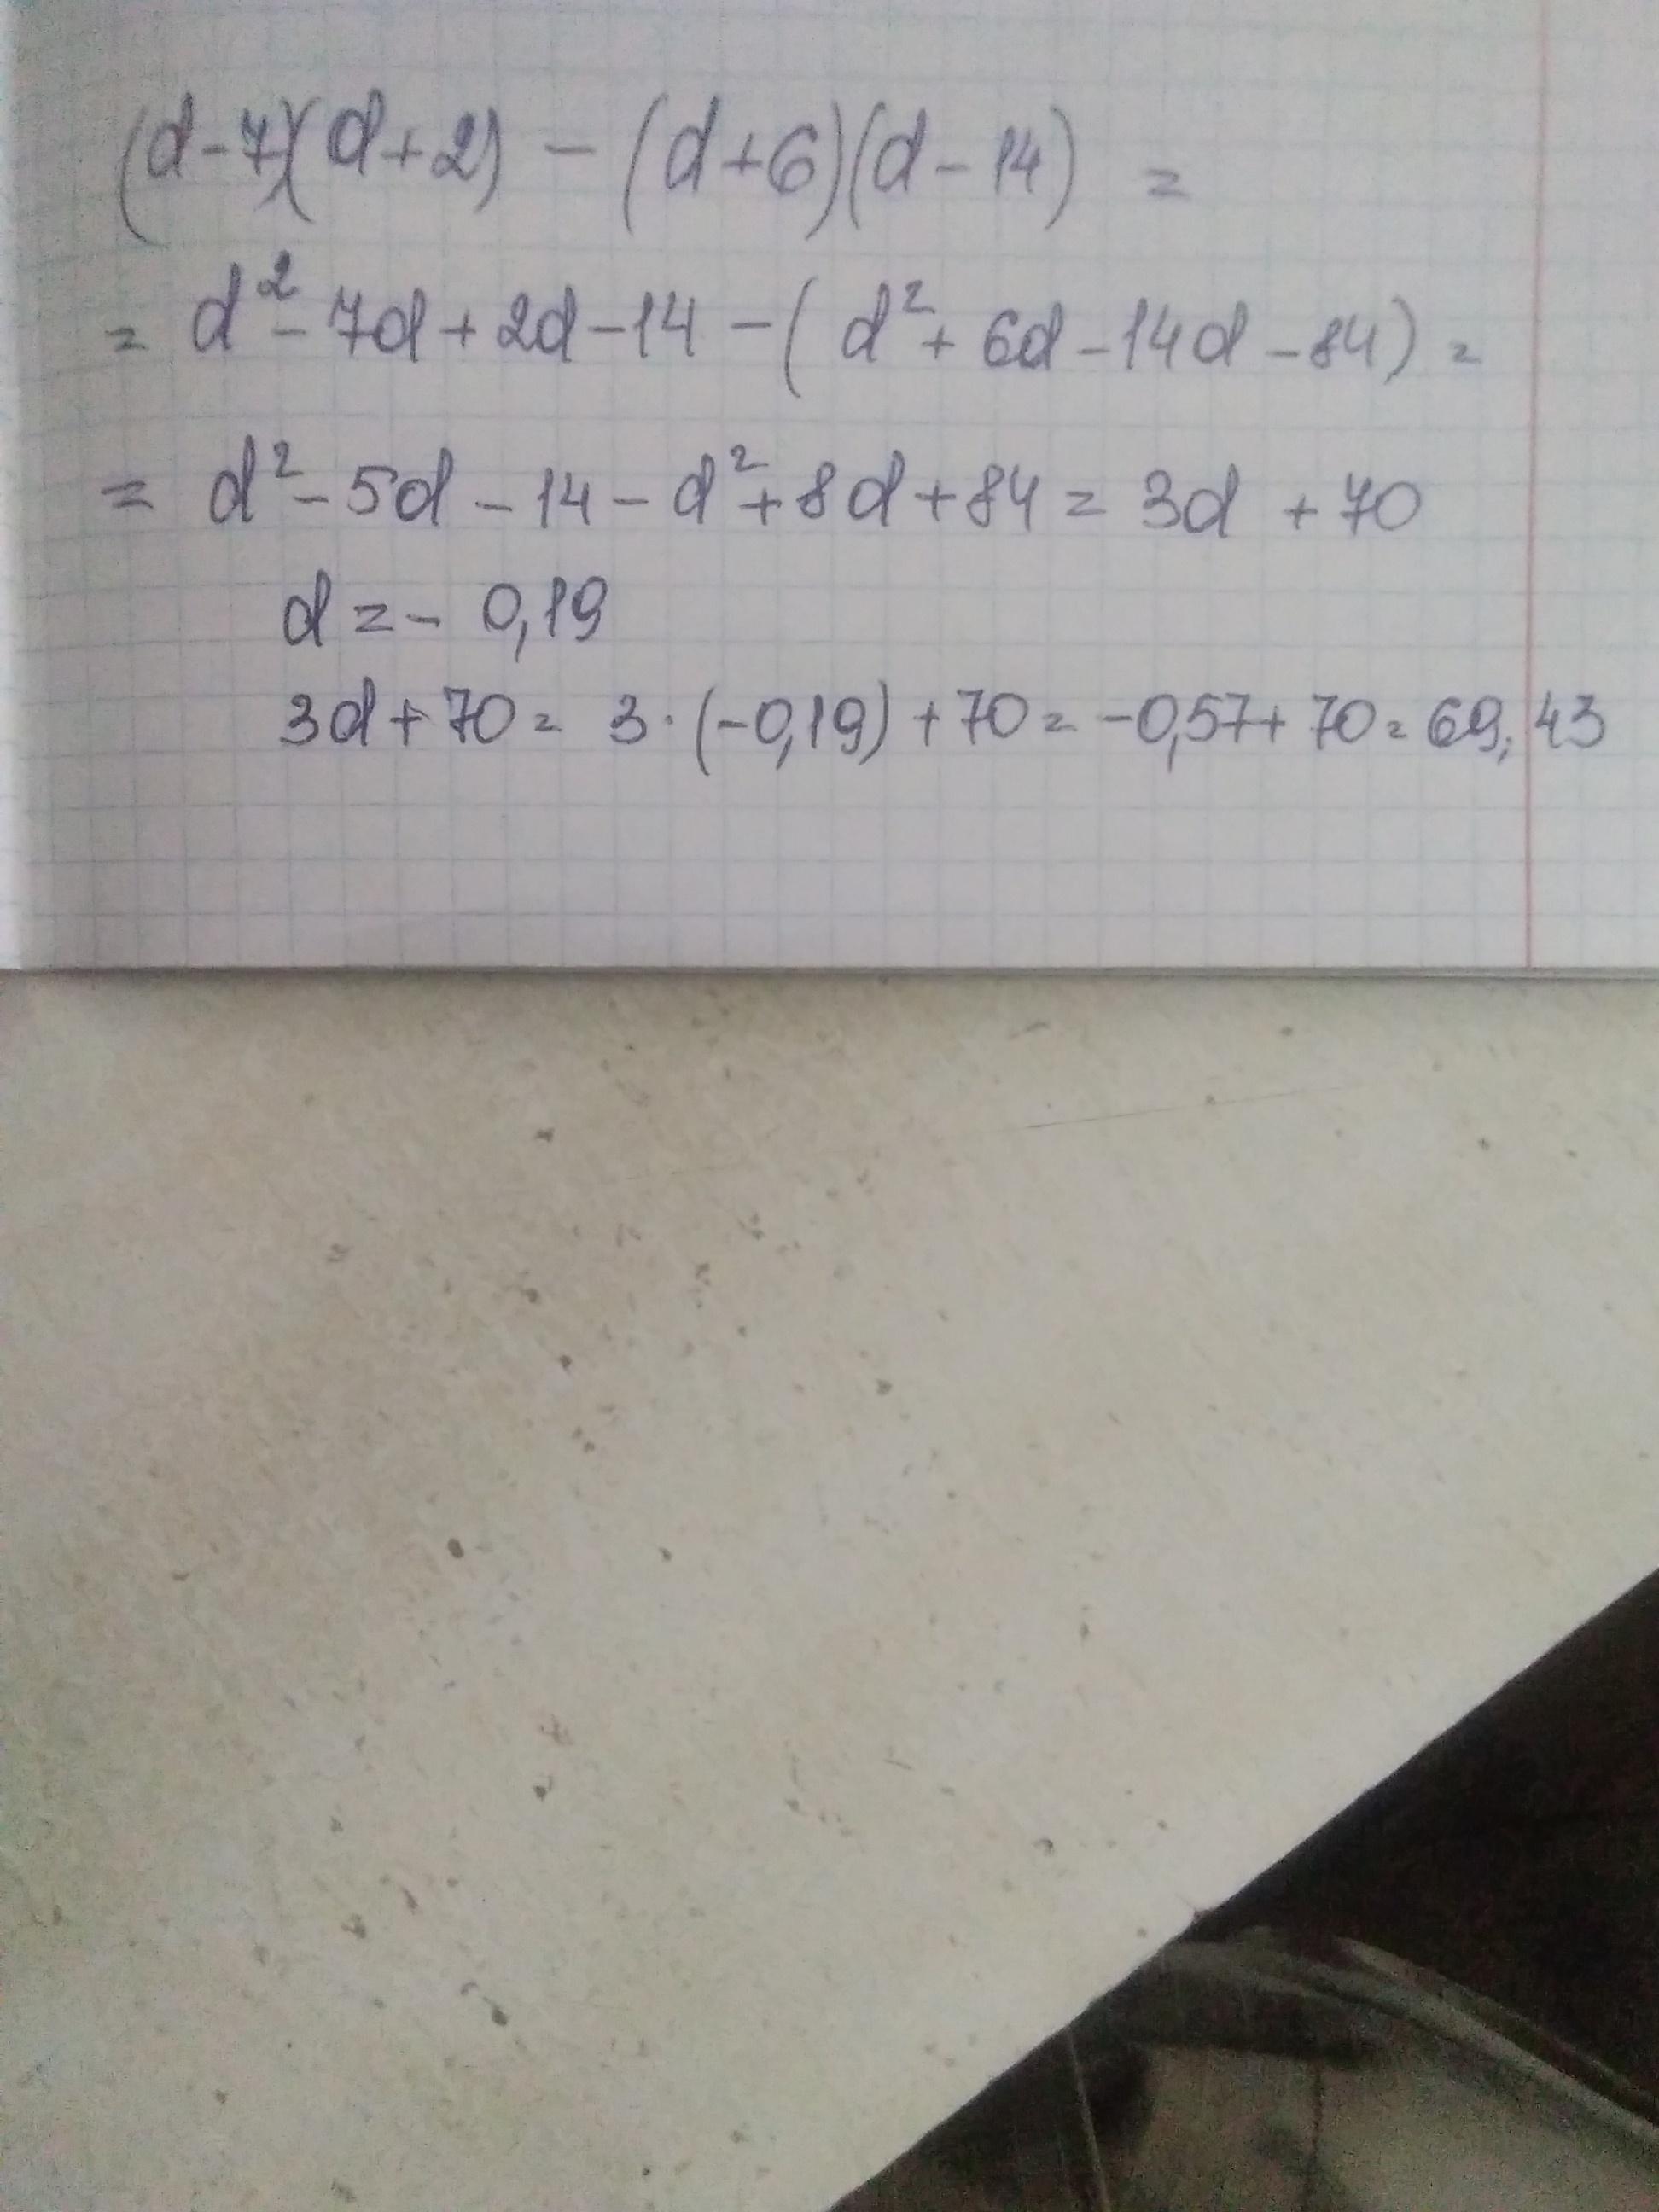 (d-7)(d+2) - (d+6)(d-14) =
= d² - 7d + 2d - 14 - (d² + 6d - 14d - 84) =
= d² - 5d - 14 - d² + 8d + 84 = 3d + 70
d = - 0,19
3d + 70 = 3 · (-0,19) + 70 = -0,57 + 70 = 69,43